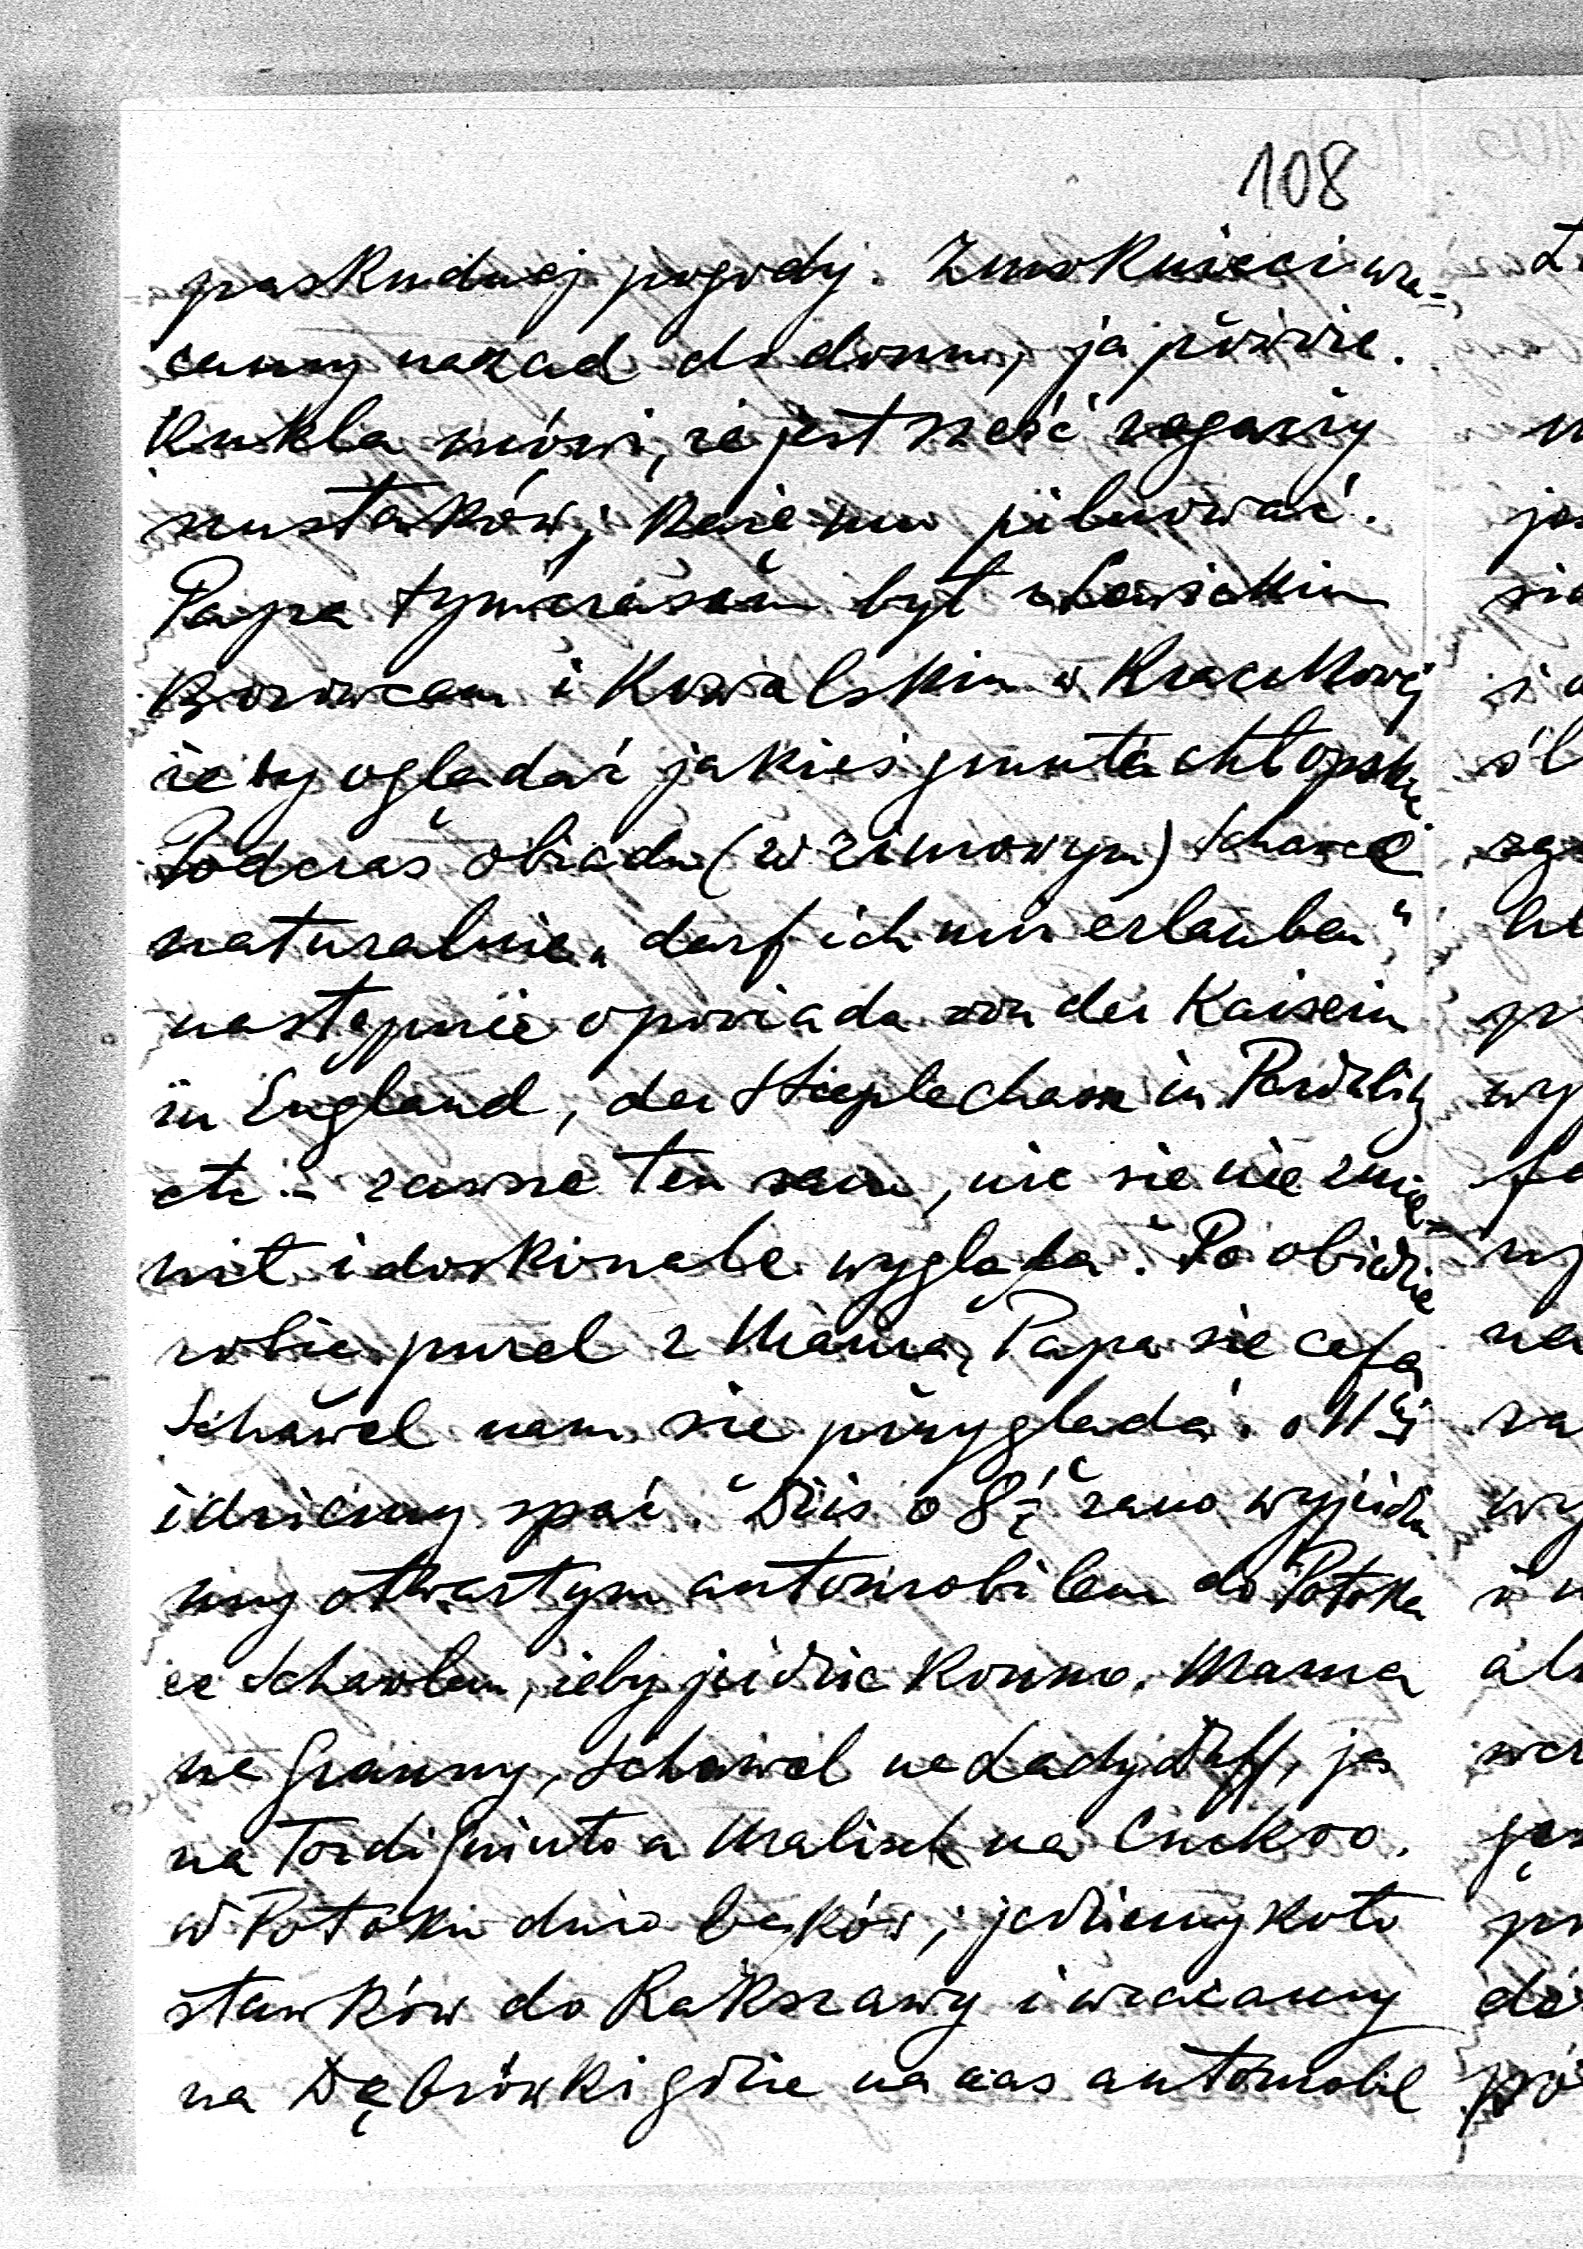 108
paskudnej pogody. Zmoknięci wra=
camy nazad do domu, ja później.
Kukla mówi, że jest sześć rogaczy
szustaków; każe mu pilnować.
Papa tymczasem był z
Borowcem i Kowalskim w Kraczkowej
żeby oglądać jakieś grunta chłopskie
Podczas obiadu (w zimowym) Schawel
naturalnie „darf ich mir erlauben"
następnie opowiada von der Kaiserin
in England, der Steeplechase in Pardubitz
etc - zawsze ten sam, nic się nie zmie=
nił i doskonale wygląda. Po obiedzie
robię pusel z Mamą, Papa się cofa
Schawel nam się przygląda. o 11
idziemy spać. Dziś o 8 rano wyjeżdża
my otwartym automobilem do Potoka
ze Schawlem, żeby jeździć konno. Mama
na Granny, Schawel na Lady Duff, ja
na Tordi Gninto a Maliszek na Cuckoo.
W Potoku dużo bąków; jedziemy koło
stawków do Rakszawy i wracamy
na Dąbrówki gdzie na nas automobil